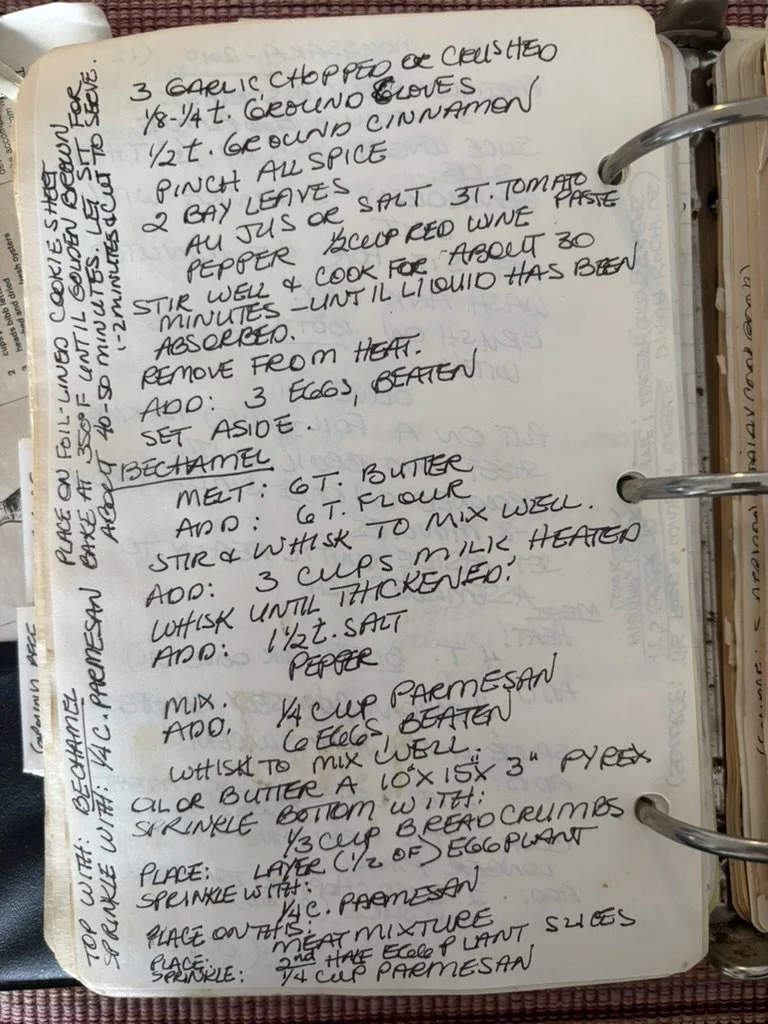 3 GARLIC, CHOPPED OR CRUSHED
1/8-1/4 t. GROUND CLOVES
1/2 t. GROUND CINNAMON
PINCH ALLSPICE
2 BAY LEAVES
AU JUS OR SALT 3T. TOMATO PASTE
PEPPER 1/2 CUP RED WINE
STIR WELL & COOK FOR ABOUT 30
MINUTES - UNTIL LIQUID HAS BEEN
ABSORBED.
REMOVE FROM HEAT.
ADD: 3 EGGS, BEATEN
SET ASIDE.
BECHAMEL
MELT: 6 T. BUTTER
ADD: 6 T. FLOUR
STIR & WHISK TO MIX WELL.
ADD: 3 CUPS MILK HEATED
WHISK UNTIL THICKENED.
ADD: 1 1/2 t. SALT
PEPPER
MIX. 1/4 CUP PARMESAN
ADD. 6 EGGS, BEATEN
WHISK TO MIX WELL.
OIL OR BUTTER A 10" X 15" X 3" PYREX
SPRINKLE BOTTOM WITH:
1/3 CUP BREADCRUMBS
PLACE: LAYER (1/2 OF) EGGPLANT
SPRINKLE WITH:
1/4 C. PARMESAN
PLACE ON THIS:
MEAT MIXTURE
PLACE: 2nd HALF EGGPLANT SLICES
SPRINKLE: 1/4 CUP PARMESAN
TOP WITH: BECHAMEL
SPRINKLE WITH: 1/4 C. PARMESAN
PLACE ON FOIL-LINED COOKIE SHEET
BAKE AT 350°F UNTIL GOLDEN BROWN FOR
ABOUT 40-50 MINUTES. LET SIT
1-2 MINUTES & CUT TO SERVE.